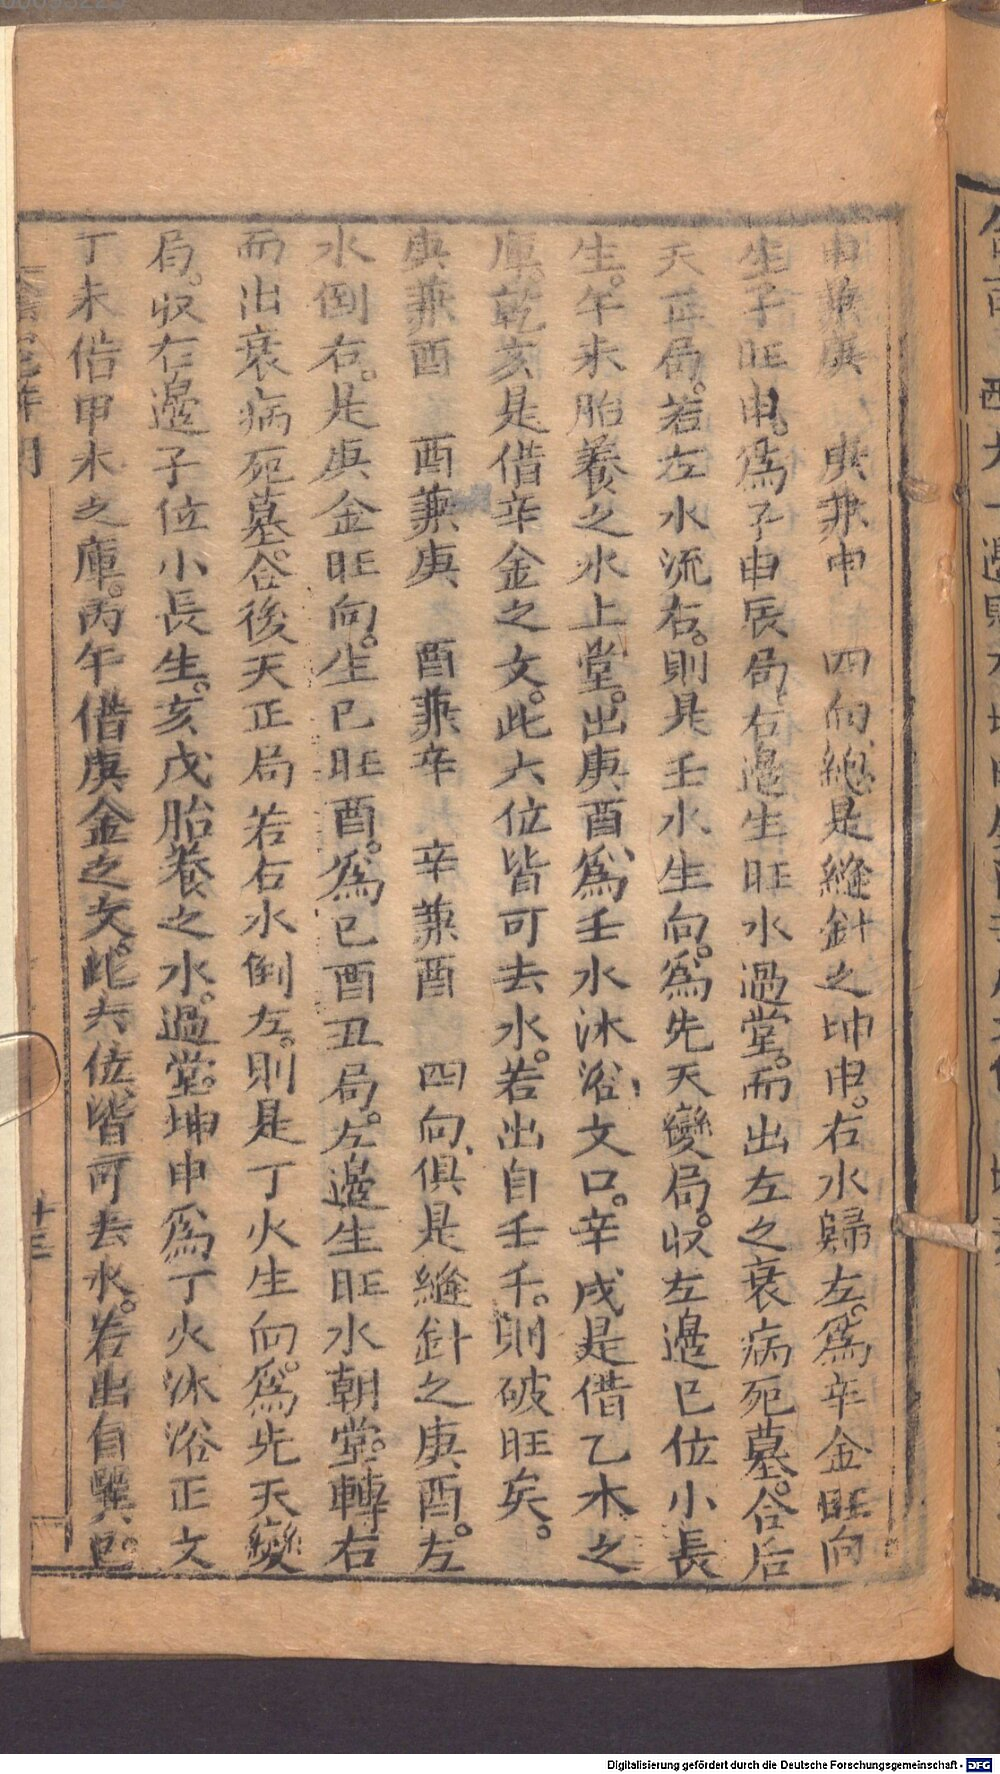 申兼庚　庚兼申　四向總是縫針之坤申。右水歸左。爲辛金旺向
生子旺申。爲子申辰局。右邊生旺水過堂。而出左之衰病死墓。合后
天正局。若左水流右。則是壬水生向。爲先天變局。收左邊巳位小長
生。午未胎養之水上堂。出庚酉、爲壬水沐浴文口。辛戌是借乙木之
庫。乾亥是借辛金之文。此六位皆可去水。若出自壬子。則破旺矣。
庚兼酉　酉兼庚　酉兼辛　辛兼酉　四向、俱是縫針之庚酉。左
水倒右。是庚金旺向。生巳旺酉。爲巳酉丑局。左邊生旺水朝堂。轉右
而出衰病死墓。合後天正局若右水倒左。則是丁火生向。爲先天變
局。収右邊子位小長生。亥戌胎養之水。過堂。坤申爲丁火沐浴正文
丁未借甲木之庫。丙午借庚金之文。此六位、皆可去水。若出自巽巳。
十三
Digitalisierung gefördert durch die Deutsche Forschungsgemeinschaft - DFG